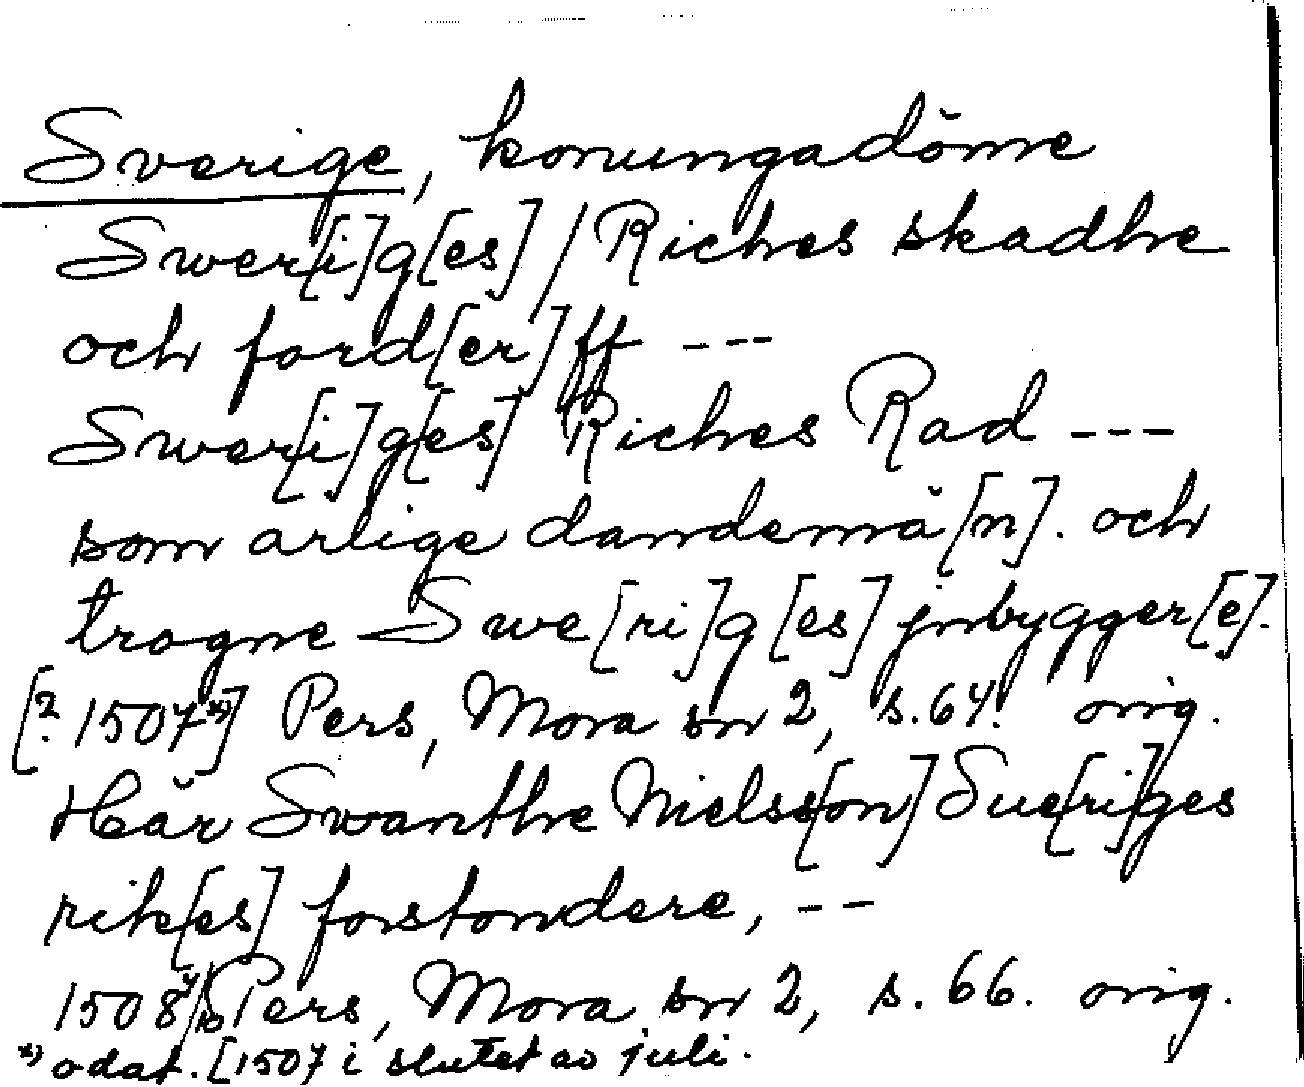 Sverige, konungadöme
Swer[i]g[es] / Riches skadhe
och ford[er]ff ---
Swer[i]g[es] Riches Rad ---
som ärlige dandemä[n]. och
trogne Swe[ri]g[es] jnbygger[e].
[? 1507*)] Pers, Mora sn 2, s. 64. orig.
Häär Swanthe Nielss[on] Sue[ri]ges
rik[es] forstondere, --
1508 Pers, Mora sn 2, s. 66. orig.
*) odat. [1507 i slutet av juli.